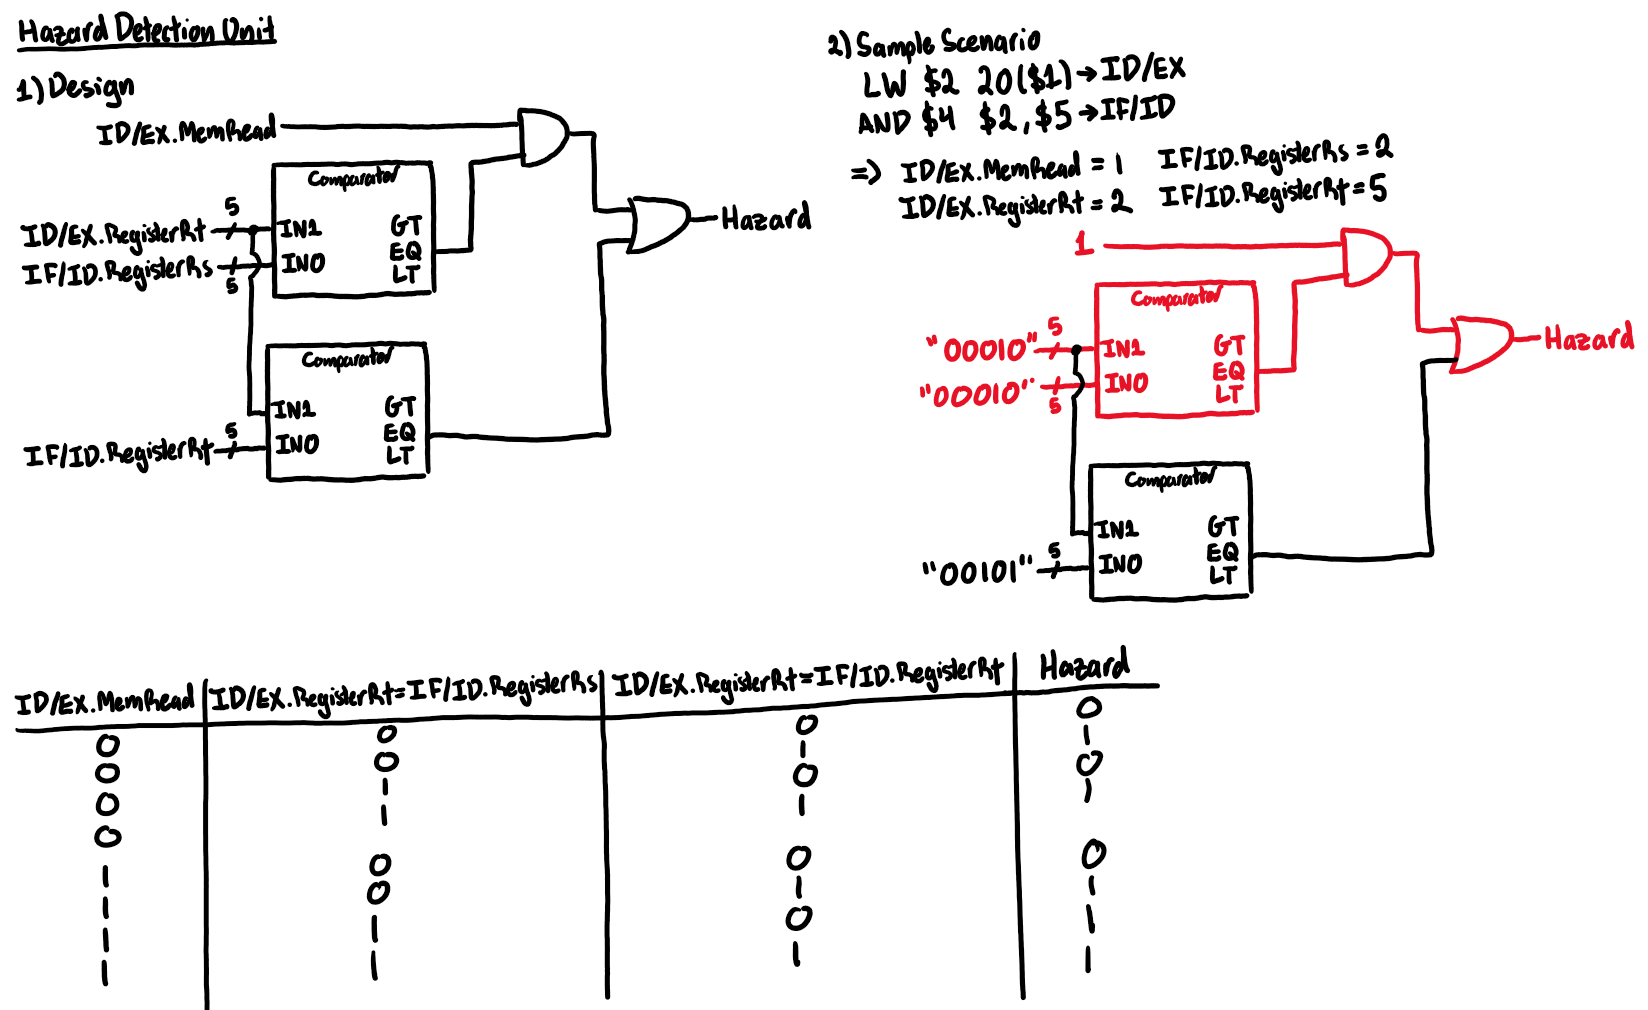 Hazard Detection Unit
1) Design
ID/EX.MemRead
Comparator
5
ID/EX.RegisterRt
IN1
GT
EQ
IF/ID.RegisterRs
IN0
LT
5
Hazard
Comparator
IN1
GT
5
EQ
IF/ID.RegisterRt
IN0
LT
2) Sample Scenario
LW $2 20($1) → ID/EX
AND $4 $2, $5 → IF/ID
=> ID/EX.MemRead = 1 IF/ID.RegisterRs = 2
ID/EX.RegisterRt = 2 IF/ID.RegisterRt = 5
1
Comparator
5
"00010"
IN1
GT
EQ
"00010"
IN0
LT
5
Hazard
Comparator
IN1
GT
5
EQ
"00101"
IN0
LT
ID/EX.MemRead ID/EX.RegisterRt=IF/ID.RegisterRs ID/EX.RegisterRt=IF/ID.RegisterRt Hazard
0 0 0 0
0 0 1 1
0 1 0 0
0 1 1 1
1 0 0 0
1 0 1 1
1 1 0 1
1 1 1 1